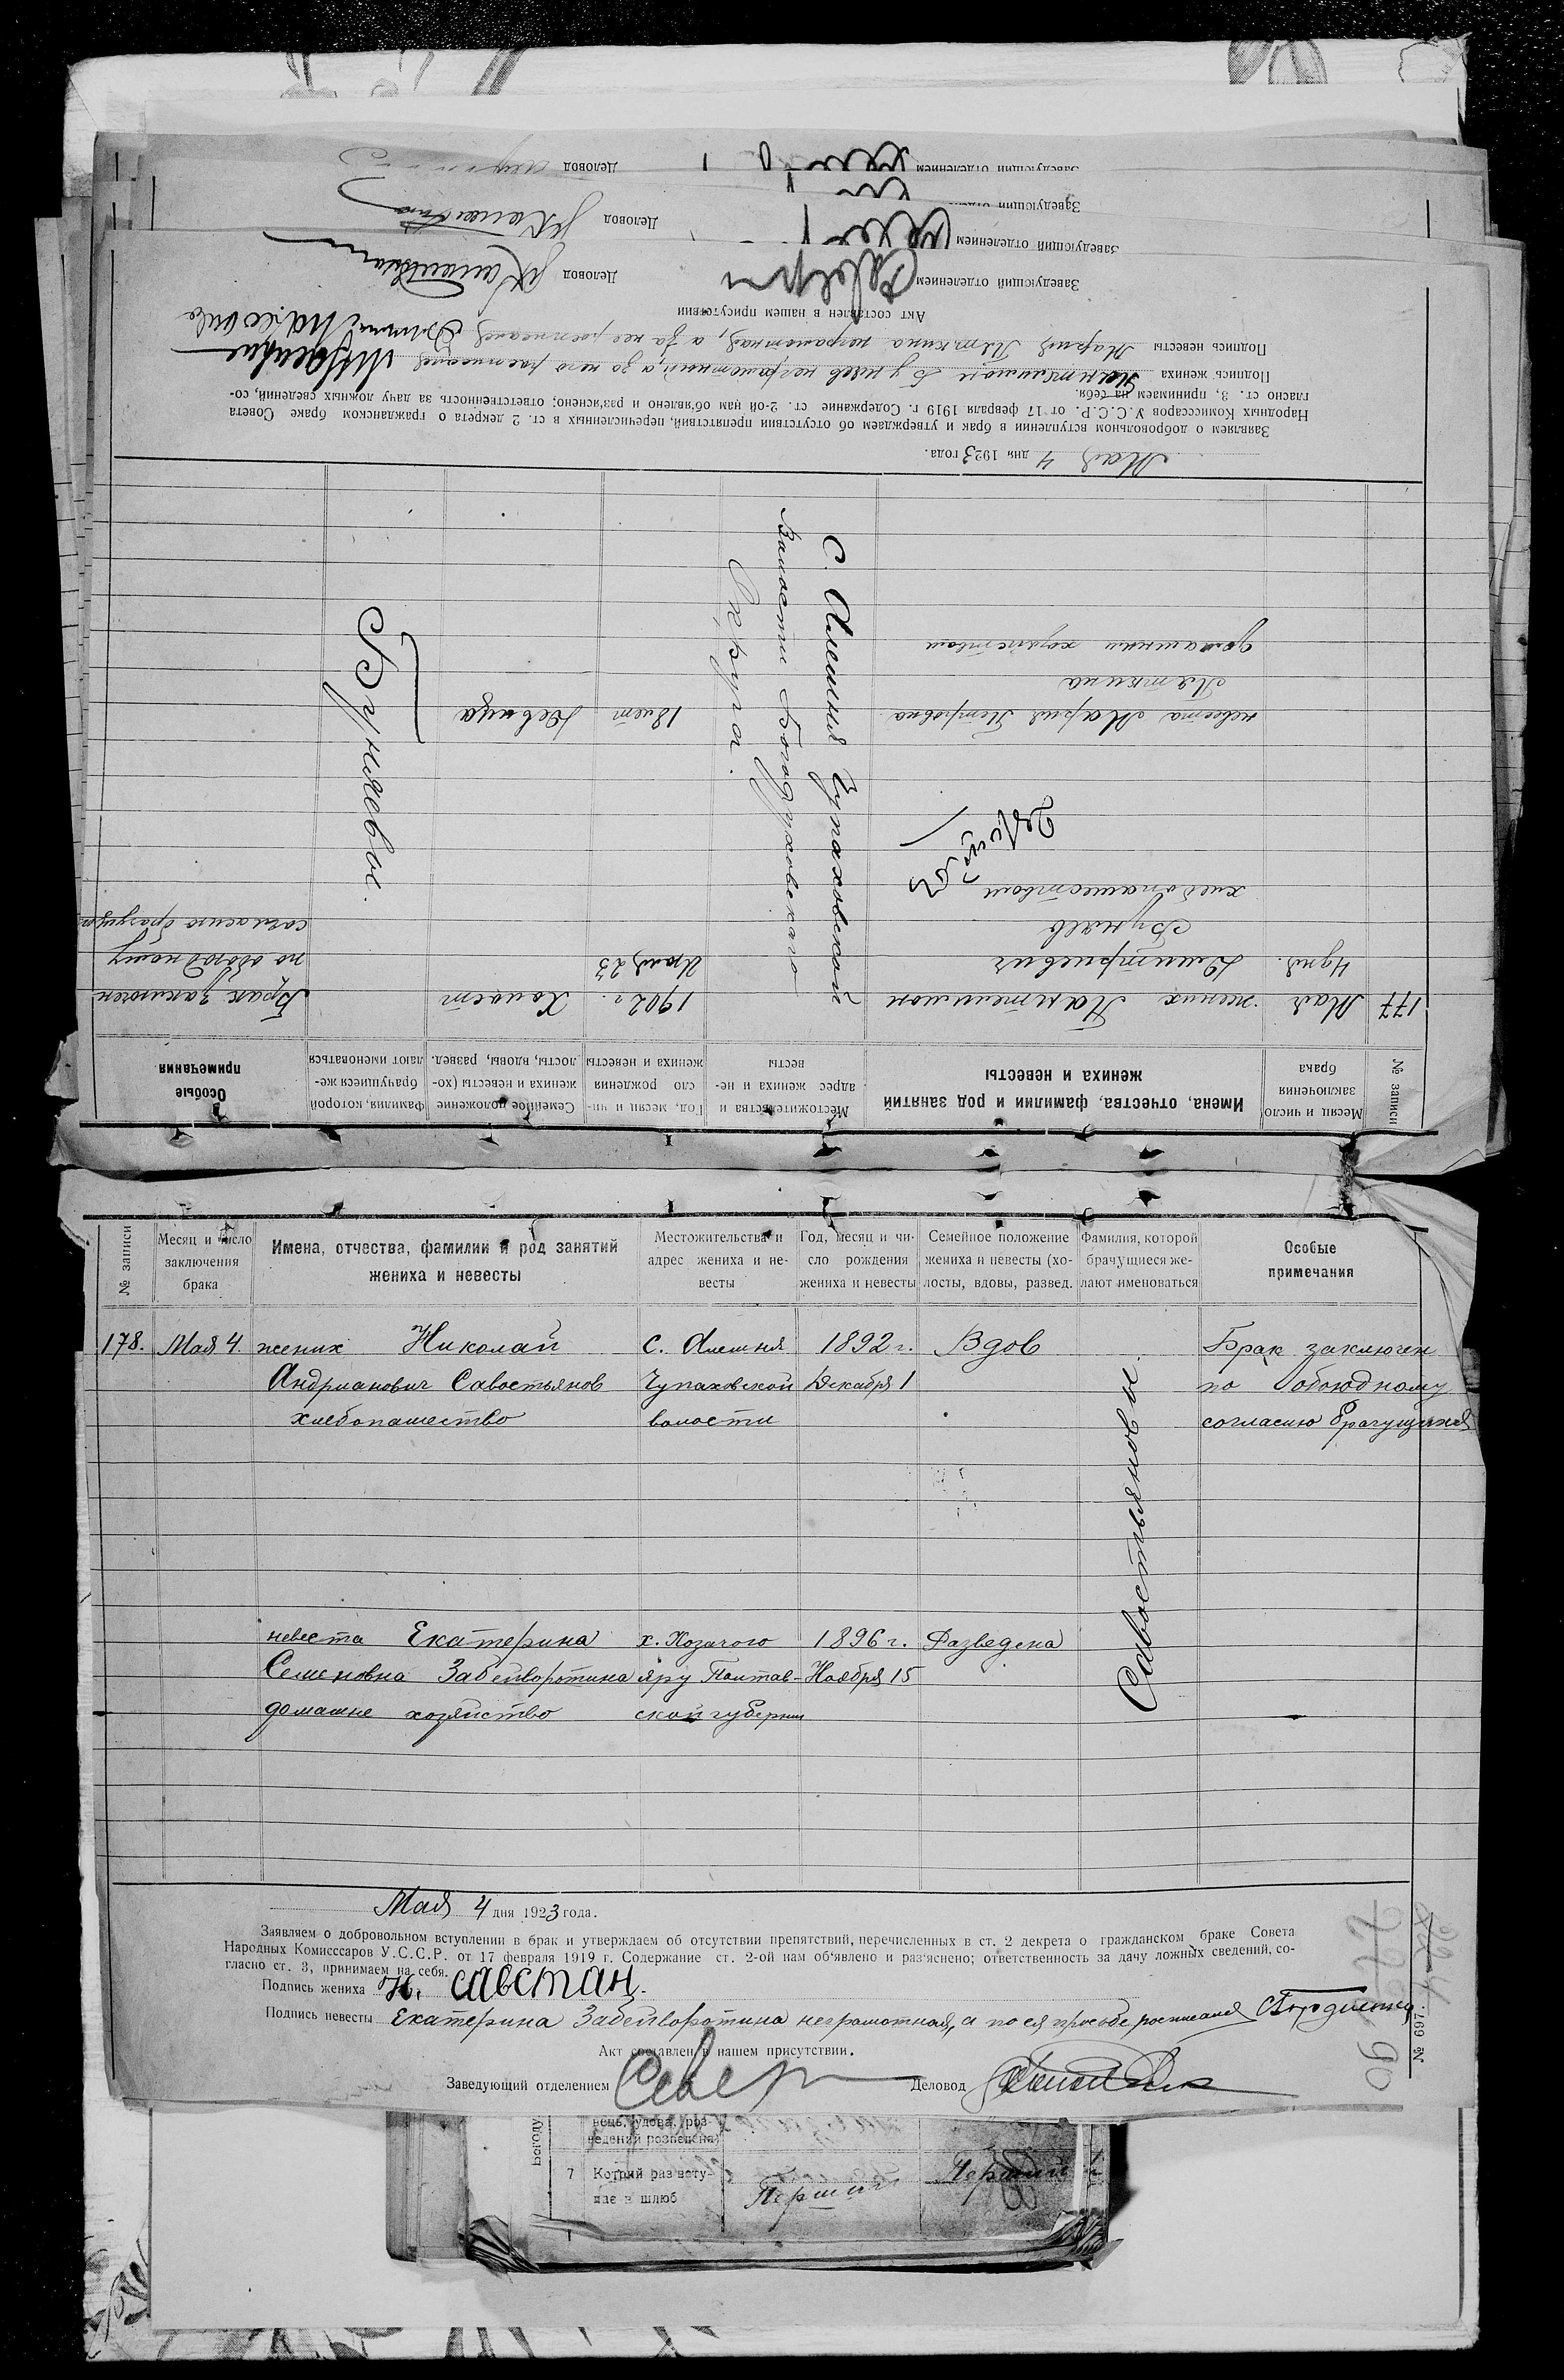 № записи
Месяц и число заключения брака
Имена, отчества, фамилии и род занятий жениха и невесты
Местожительства и адрес жениха и не- весты
Год, месяц и чи- сло рождения жениха и невесты
Семейное положение жениха и невесты (хо- лосты, вдовы, развед.
Фамилия, которой брачущиеся же- лают именоваться
Особые примечания
177 Мая жених Пантелимон 1902 г. Холост Брак заключен
4 дня. Дмитриевич Июля 23 по обоюдному
Буняев согласию брачущихся
хлебопашеством
С. Алешня Чупаховской
Волости Богодуховского
Округа.
Буняевы.
невеста Мария Петровна 18 лет Девица
Пяткина
домашним хозяйством
Мая 4 дня 1923 года.
Заявляем о добровольном вступлении в брак и утверждаем об отсутствии препятствий, перечисленных в ст. 2 декрета о гражданском браке Совета
Народных Комиссаров У.С.С.Р. от 17 февраля 1919 г. Содержание ст. 2-ой нам об'явлено и раз'яснено; ответственность за дачу ложных сведений, со-
гласно ст. 3, принимаем на себя.
Подпись жениха Пантелимон Буняев неграмотный, а за него расписался
Подпись невесты Мария Пяткина неграмотная, а за нее расписался
Акт составлен в нашем присутствии
Заведующий отделением Деловод
Заведующий отделением Деловод
Заведующий отделением
Заведующий отделением Деловод
№ записи
Месяц и число заключения брака
Имена, отчества, фамилии и род занятий жениха и невесты
Местожительства и адрес жениха и не- весты
Год, месяц и чи- сло рождения жениха и невесты
Семейное положение жениха и невесты (хо- лосты, вдовы, развед.
Фамилия, которой брачущиеся же- лают именоваться
Особые примечания
178. Мая 4. жених Николай с. Алешня 1892 г. Вдов Брак заключен
Андрианович Савостьянов Чупаховской Декабря 1 по обоюдному
хлебопашество волости согласию брачущихся
Савостьяновы.
невеста Екатерина х. Козачого 1896 г. Разведена
Семеновна Забейворотина яру Полтав- Ноября 15
домашне хозяйство ской губернии
Мая 4 дня 1923 года.
Заявляем о добровольном вступлении в брак и утверждаем об отсутствии препятствий, перечисленных в ст. 2 декрета о гражданском браке Совета
Народных Комисссаров У.С.С.Р. от 17 февраля 1919 г. Содержание ст. 2-ой нам об'явлено и раз'яснено; ответственность за дачу ложных сведений, со-
гласно ст. 3, принимаем на себя.
Подпись жениха Н. Савстан.
Подпись невесты Екатерина Забейворотина неграмотная, а по ея прозьбе росписался
Акт составлен в нашем присутствии.
Заведующий отделением Север Деловод
№ 697.
ведений розведена)
7 Котрий раз всту- Перший Перший
пає в шлюб